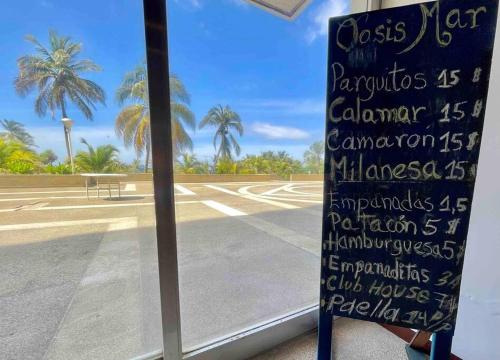 Oasis Mar
Parguitos 15 $
Calamar 15 $
Camarón 15 $
Milanesa 15
Empanadas 1,5
Patacón 5 $
Hamburguesa 5
Empanaditas 3
Club House 7
Paella 14